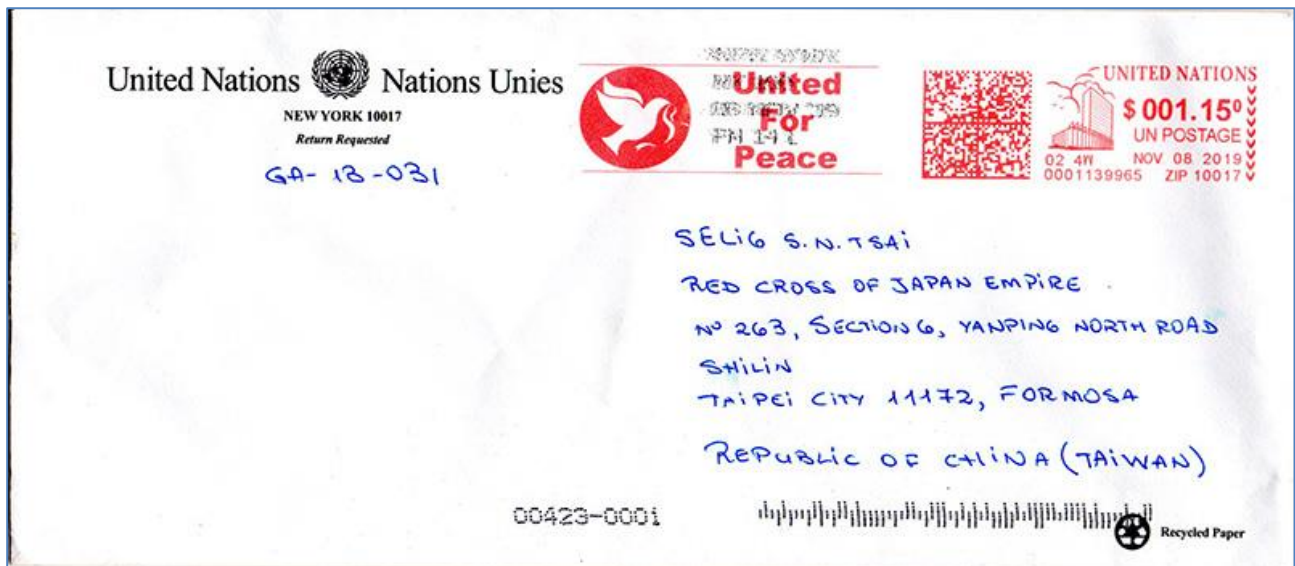 United Nations Nations Unies
NEW YORK 10017
Return Requested
GA-13-031
United
For
Peace
PM 14 L
UNITED NATIONS
$ 001.15⁰
UN POSTAGE
02 4W NOV 08 2019
0001139965 ZIP 10017
SELIG S.N. TSAI
RED CROSS OF JAPAN EMPIRE
Nº 263, SECTION 6, YANPING NORTH ROAD
SHILIN
TAIPEI CITY 11172, FORMOSA
REPUBLIC OF CHINA (TAIWAN)
00423-0001
Recycled Paper